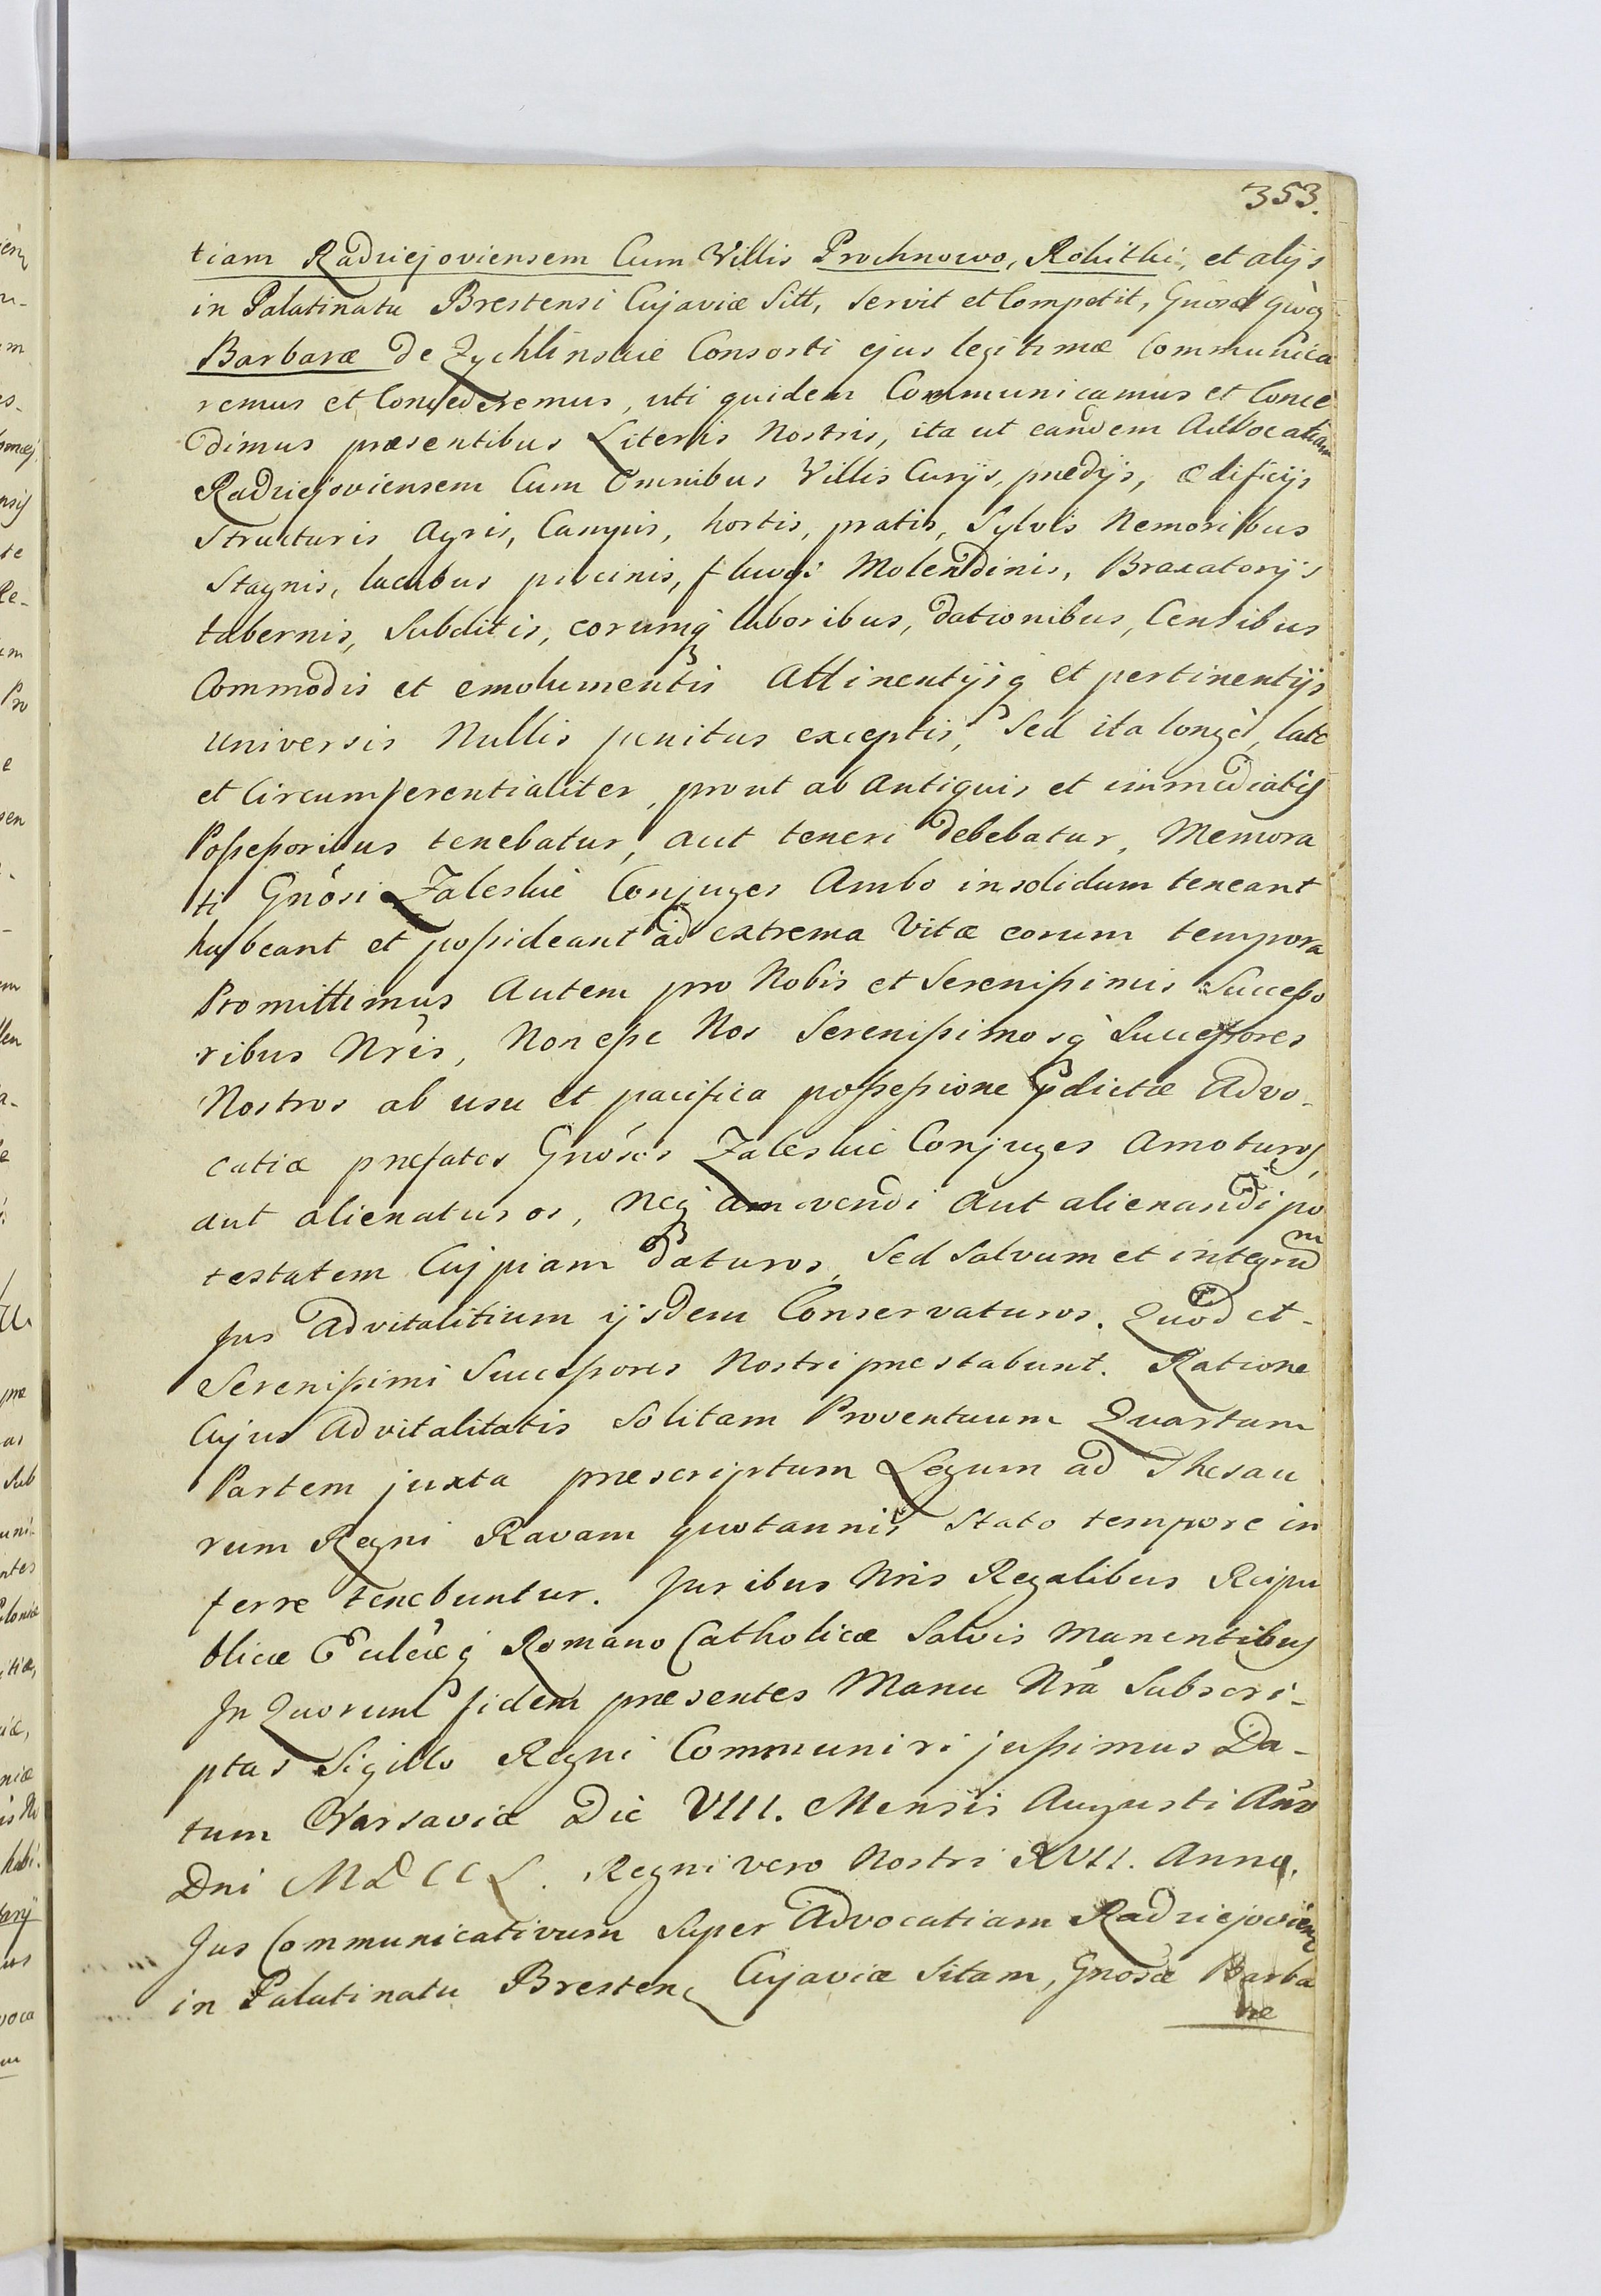 353.
tiam Radziejoviensem Cum Villis Prochnowo, Rokithi, et alijs
in Palatinatu Brestensi Cujaviæ Sitt, servit et Competit, Gnosæ quoq
Barbaræ De Zychlinskie Consorti ejus legitimæ Communica
remus et Concederemus, uti quidem Communicamus et Conce
dimus præsentibus Literis Nostris, ita ut eandem Advocatiam
Radziejoviensem Cum Omnibus Villis Curijs, prædijs, ædificijs
Structuris Agris, Campis, hortis, pratis, Sylvis Nemoribus
Stagnis, lacubus piscinis, fluvijs Molendinis, Braxatorijs
tabernis, Subditis, eorumq laboribus, dationibus, Censibus
Commodis et emolumentis Attinentijsq et pertinentijs
universis Nullis penitus exceptis, Sed ita longè, late
et Circumferentialiter, prout ab antiquis et immediatis
Possessoribus tenebatur, aut teneri debebatur, Memora
ti Gnosi Zaleskie Conjuges Ambo insolidum teneant
habeant et possideant ad extrema Vitæ eorum tempora
Promittimus Autem pro Nobis et Serenissimis Successo
ribus Nris, Non esse Nos Serenissimosq Successores
Nostros ab usu et pacifica possessione pdictæ Advo-
catiæ præfatos Gnosos Zaleskie Conjuges Amoturos,
aut alienaturos, Neq amovendi Aut alienandi po
testatem Cujpiam daturos, Sed Salvum et integrum
Jus Advitalitium ijsdem Conservaturos. Quod et-
Serenissimi Successores Nostri præstabunt. Ratione
Cujus Advitalitatis Solitam Proventuum Quartam
Partem juxta præscriptum Legum ad Thesau
rum Regni Ravam quotannis Stato tempore in
ferre tenebuntur. Juribus Nris Regalibus Reipu
blicæ Ecclæq Romano Catholicæ Salvis Manentibus
In Quorum fidem præsentes Manu Nrâ Subscri-
ptas Sigillo Regni Communiri jussimus Da-
tum Varsaviæ Die VIII. Mensis Augusti Ano
Dni MDCCL. Regni vero Nostri XVII. Anno.
Jus Communicativum Super Advocatiam Radziejovien
in Palatinatu Bresten, Cujaviæ Sitam, Gnosæ Barba
ræ